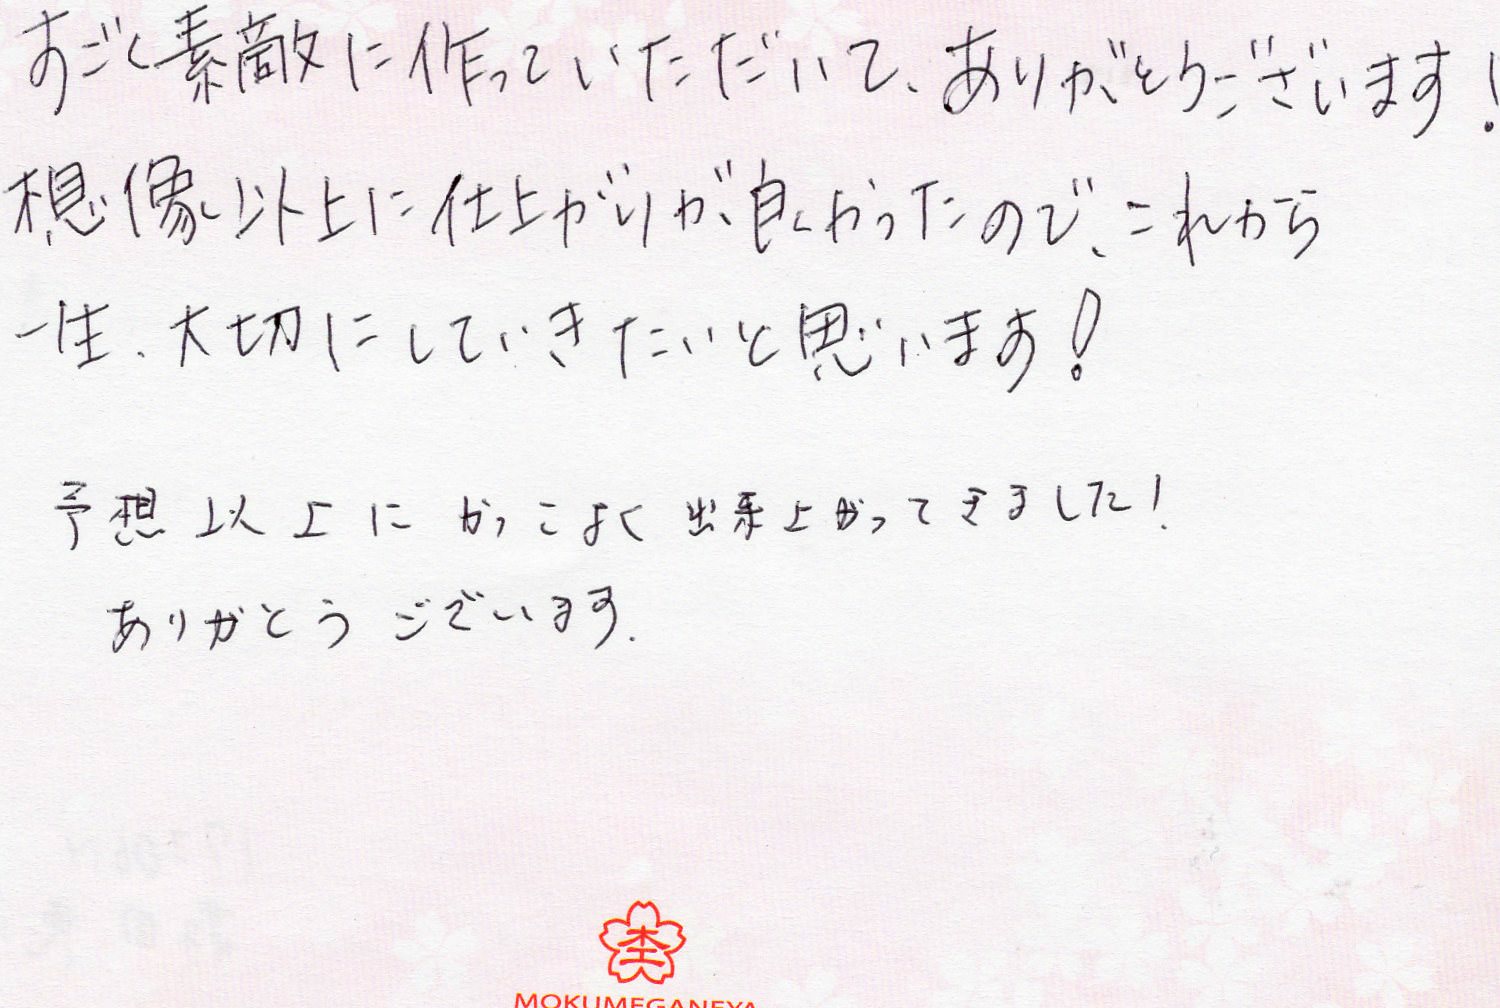 すごく素敵に作っていただいて、ありがとうございます!
想像以上に仕上がりが良かったので、これから
一生、大切にしていきたいと思います!
予想以上にかっこよく出来上がってきました!
ありがとうございます.
MOKUMEGANEYA